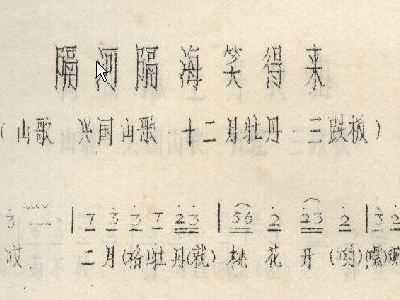 隔河隔海笑得来
(山歌 兴国山歌 十二月牡丹 三跌板)
3 | 7 3 3 7 23 | 56 2 23 2 | 3 2
哎 二月(格)牡丹(就) 桃花丹(哟)